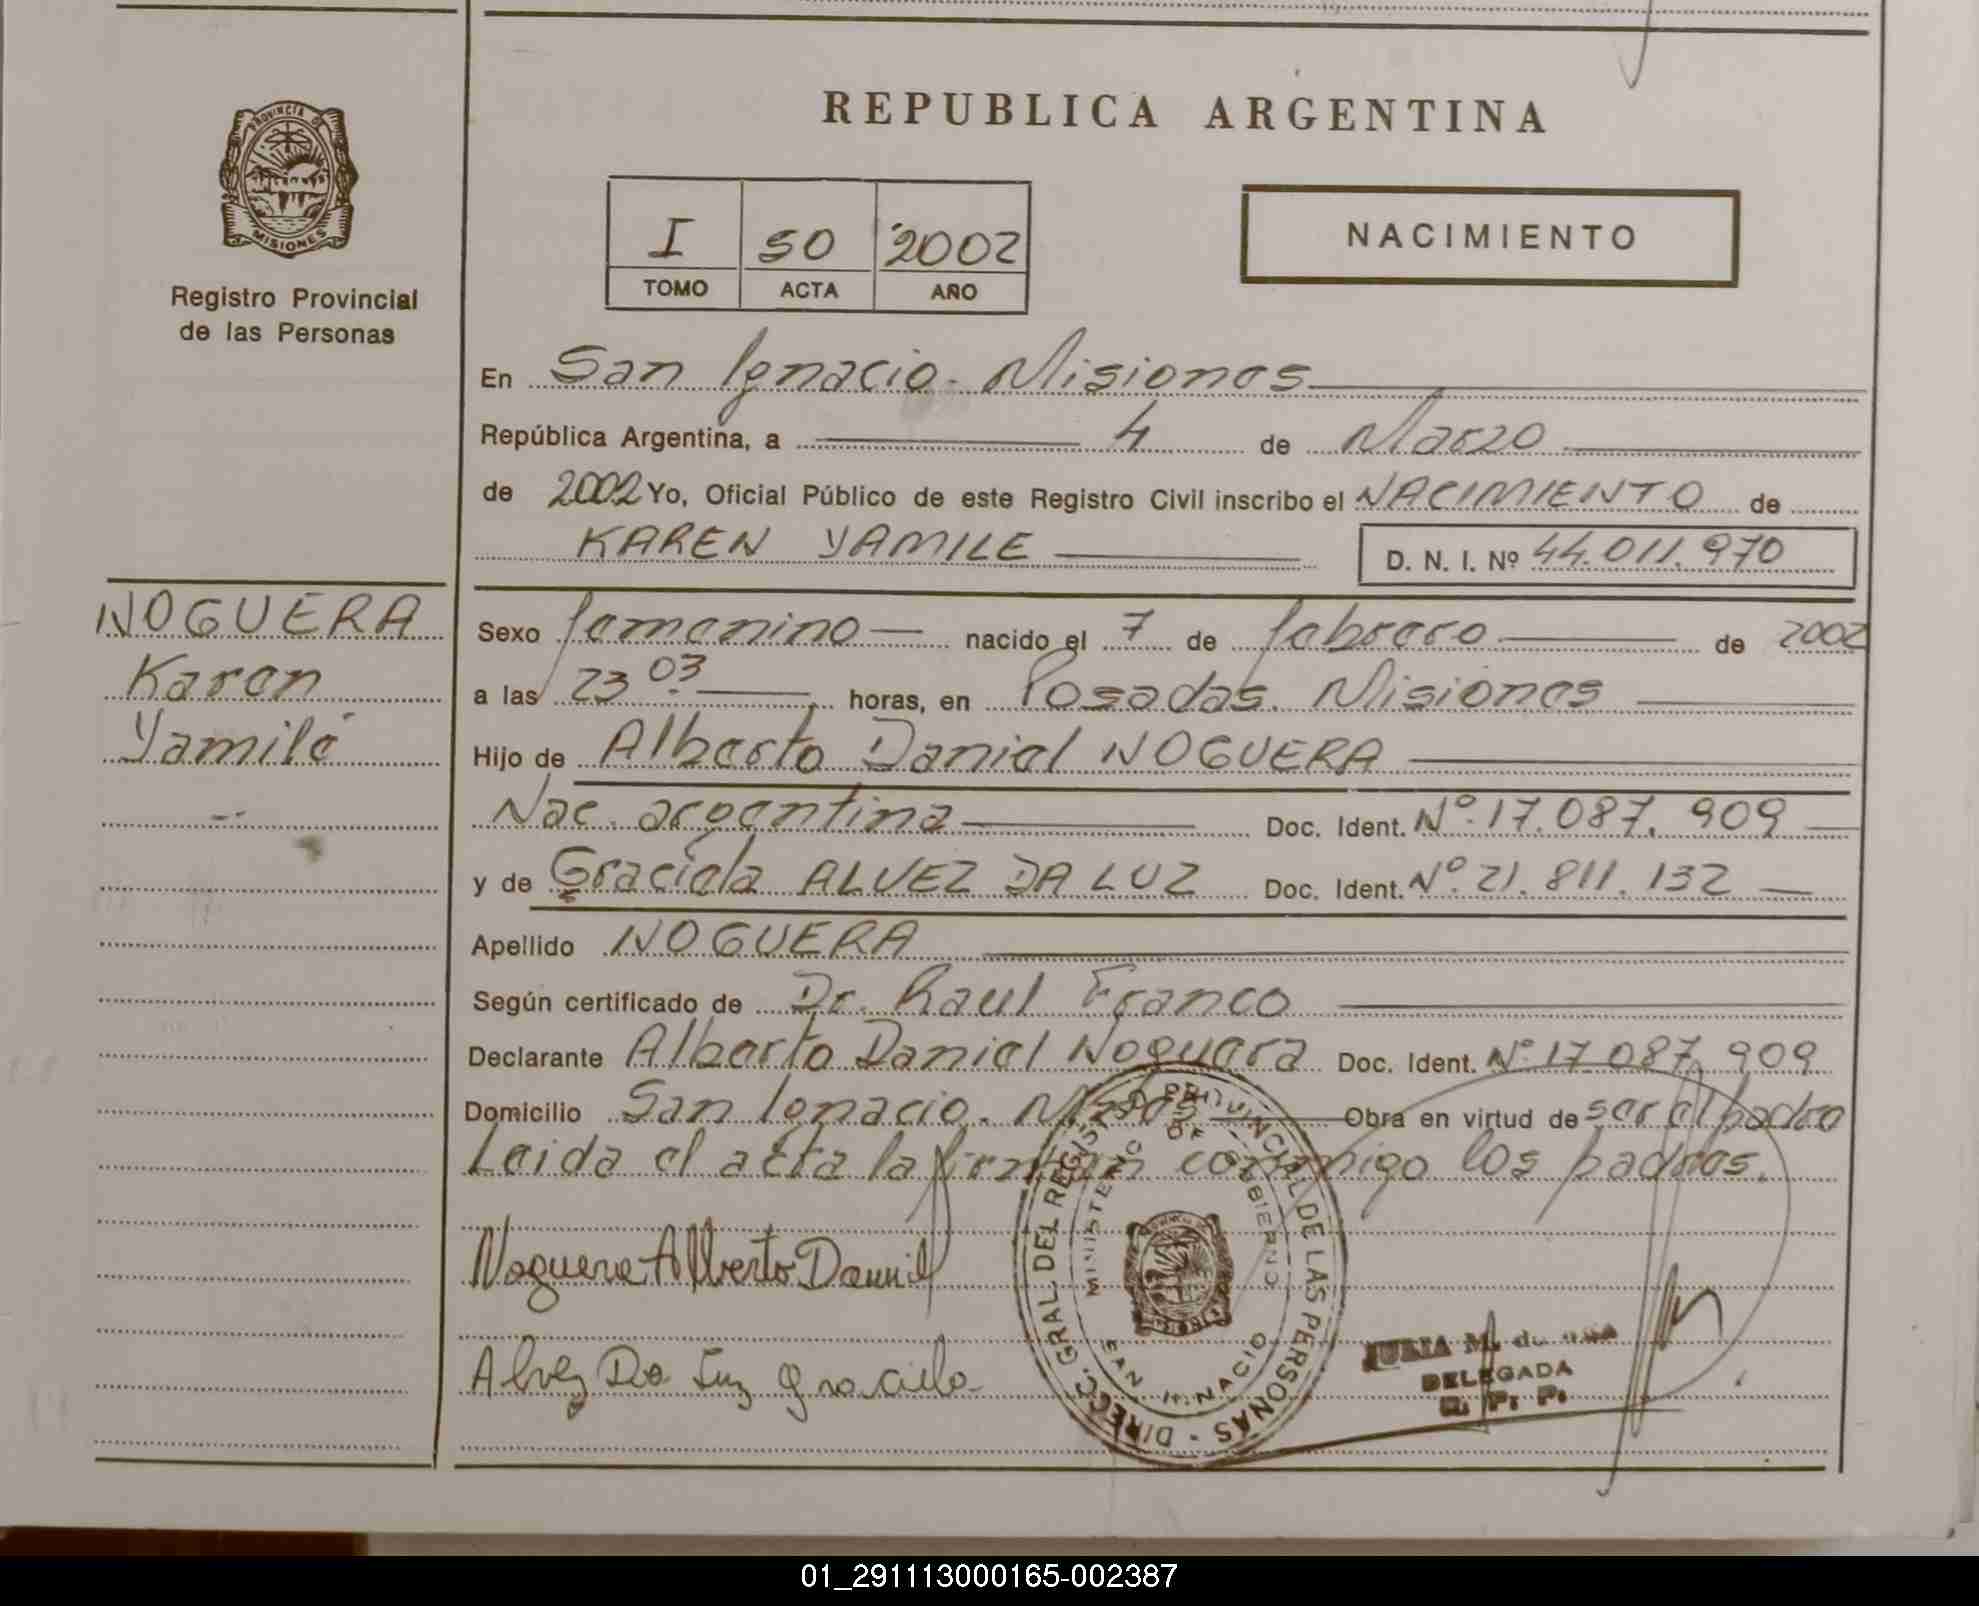 REPUBLICA ARGENTINA
PROVINCIA DE
MISIONES
Registro Provincial
de las Personas
I 50 2002
TOMO ACTA AÑO
NACIMIENTO
En San Ignacio. Misiones
República Argentina, a 4 de Marzo
de 2002 Yo, Oficial Público de este Registro Civil inscribo el NACIMIENTO de
KAREN YAMILE D. N. I. Nº 44.011.970
NOGUERA
Karen
Yamilé
Sexo femenino nacido el 7 de febrero de 2002
a las 23 03 horas, en Posadas. Misiones
Hijo de Alberto Daniel NOGUERA
Nac. argentina Doc. Ident. Nº 17.087.909
y de Graciela ALVEZ DA LUZ Doc. Ident. Nº 21.811.132
Apellido NOGUERA
Según certificado de Dr. Raul Franco
Declarante Alberto Daniel Noguera Doc. Ident. Nº 17.087.909
Domicilio San Ignacio. Obra en virtud de ser el padre
Leida el acta la firman conmigo los padres.
Noguera Alberto Daniel
Alvez Da Luz Graciela
DIRECC. GRAL DEL REGISTRO PROVINCIAL DE LAS PERSONAS -
MINISTERIO DE GOBIERNO
SAN IGNACIO
JULIA M. de
DELEGADA
R. P. P.
01_291113000165-002387